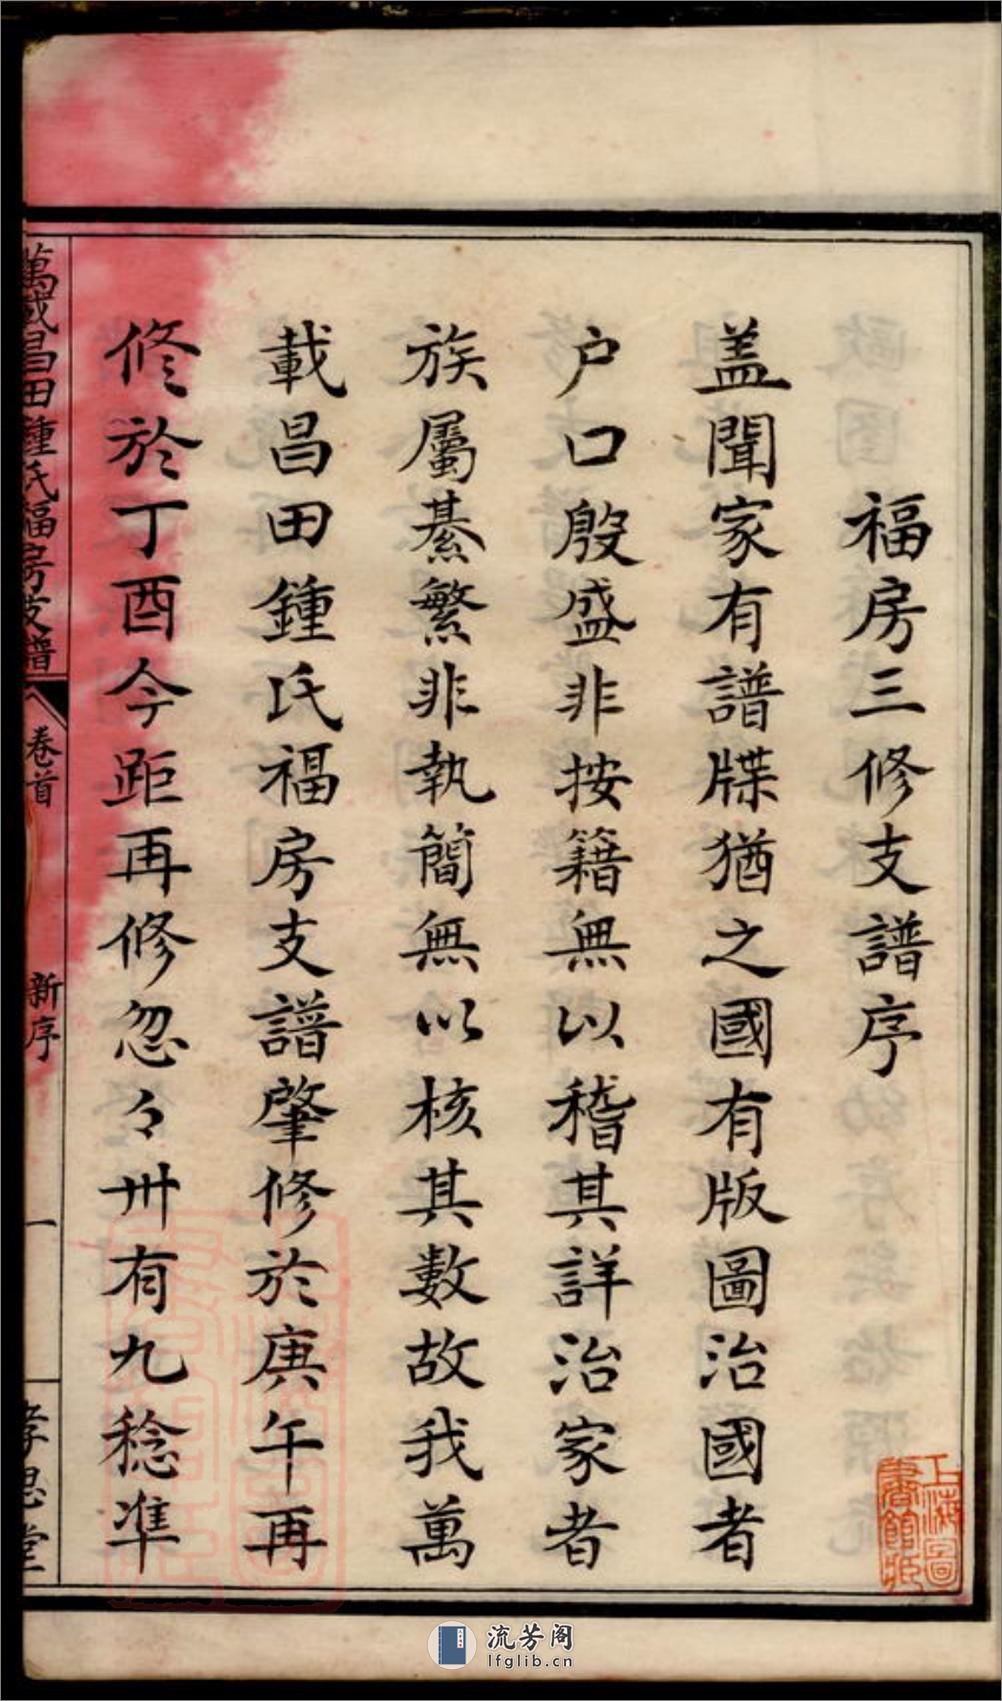 福房三修支譜序
盖聞家有譜牒猶之國有版圖治國者
户口殷盛非按籍無以稽其詳治家者
族屬綦繁非執簡無以核其數故我萬
載昌田鍾氏福房支譜肇修於庚午再
修於丁酉今距再修忽々卅有九稔準
萬載昌田鍾氏福房支譜
卷首
新序
一
孝思堂
上海圖書館藏
流芳阁
lfglib.cn